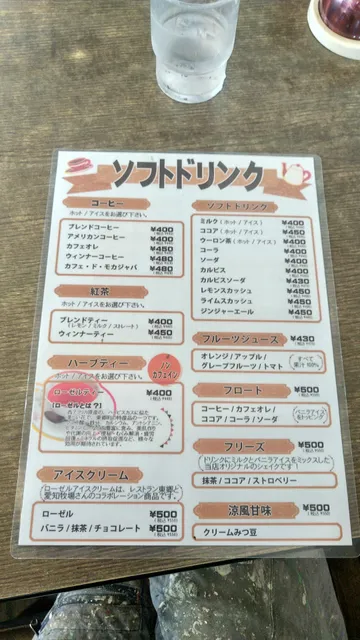 ソフトドリンク
コーヒー
ホット / アイスをお選び下さい。
ブレンドコーヒー ¥400
アメリカンコーヒー ¥400
カフェオレ ¥450
ウィンナーコーヒー ¥480
カフェ・ド・モカジャバ ¥480
紅茶
ホット / アイスをお選び下さい。
ブレンドティー ¥400
(レモン / ミルク / ストレート)
ウィンナーティー ¥450
ハーブティー
ノンカフェイン
ホット / アイスをお選び下さい。
ローゼルティー ¥400
【ローゼルとは?】
アイスクリーム
ローゼルアイスクリームは、レストラン東郷と
愛知牧場さんのコラボレーション商品です。
ローゼル ¥500
バニラ / 抹茶 / チョコレート ¥500
ソフトドリンク
ミルク (ホット / アイス) ¥400
ココア (ホット / アイス) ¥450
ウーロン茶 (ホット / アイス) ¥400
コーラ ¥400
ソーダ ¥400
カルピス ¥400
カルピスソーダ ¥430
レモンスカッシュ ¥450
ライムスカッシュ ¥450
ジンジャーエール ¥450
フルーツジュース ¥430
オレンジ / アップル /
グレープフルーツ / トマト
すべて
果汁100%
フロート ¥500
コーヒー / カフェオレ /
ココア / コーラ / ソーダ
バニラアイスを
トッピング
フリーズ ¥500
ドリンクにミルクとバニラアイスをミックスした
当店オリジナルのシェイクです!
抹茶 / ココア / ストロベリー
涼風甘味 ¥500
クリームみつ豆